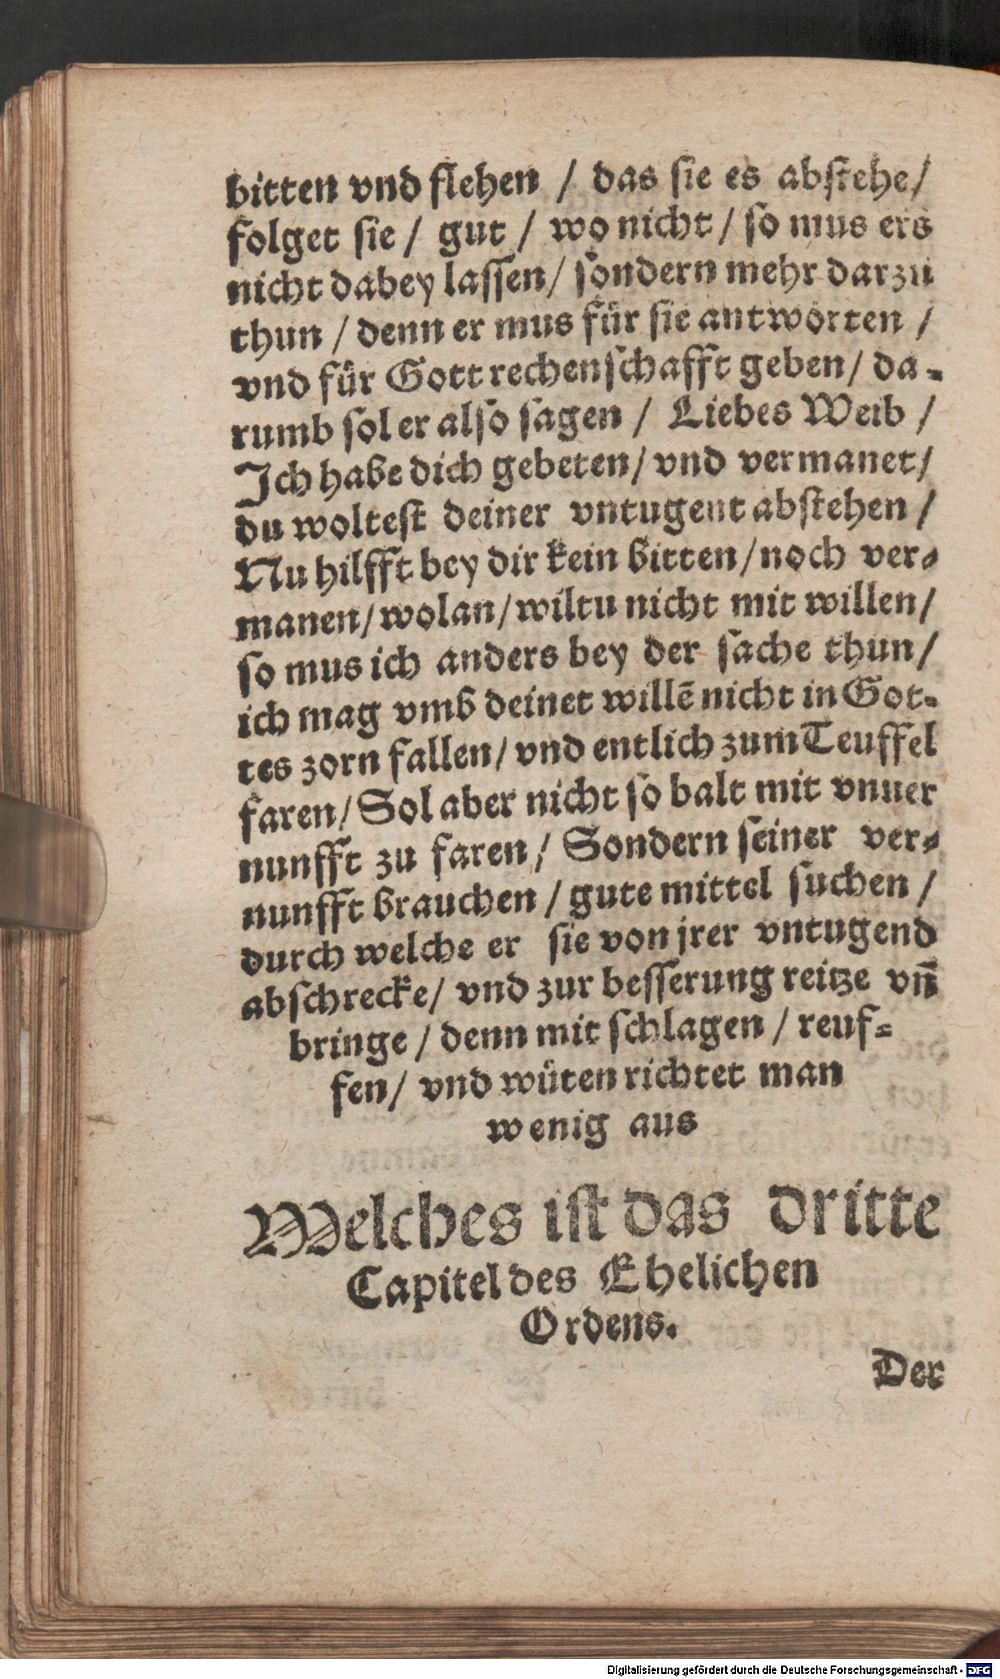 bitten vnd flehen / das sie es abstehe /
folget sie / gut / wo nicht / so mus ers
nicht dabey lassen / sondern mehr darzu
thun / denn er mus für sie antworten /
vnd für Gott rechenschafft geben / da-
rumb sol er also sagen / Liebes Weib /
Ich habe dich gebeten / vnd vermanet /
du woltest deiner vntugent abstehen /
Nu hilfft bey dir kein bitten / noch ver-
manen / wolan / wiltu nicht mit willen /
so mus ich anders bey der sache thun /
ich mag vmb deinet willẽ nicht in Got-
tes zorn fallen / vnd entlich zum Teuffel
faren / Sol aber nicht so balt mit vnuer
nunfft zu faren / Sondern seiner ver-
nunfft brauchen / gute mittel suchen /
durch welche er sie von jrer vntugend
abschrecke / vnd zur besserung reitze vñ
bringe / denn mit schlagen / reuf-
fen / vnd wüten richtet man
wenig aus
Welches ist das dritte
Capitel des Ehelichen
Ordens.
Der
Digitalisierung gefördert durch die Deutsche Forschungsgemeinschaft - DFG